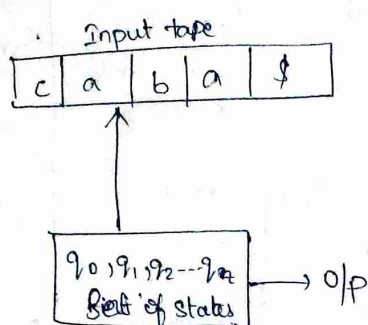 Input tape
c a b a $
q0, q1, q2 --- qn
of states
O/P